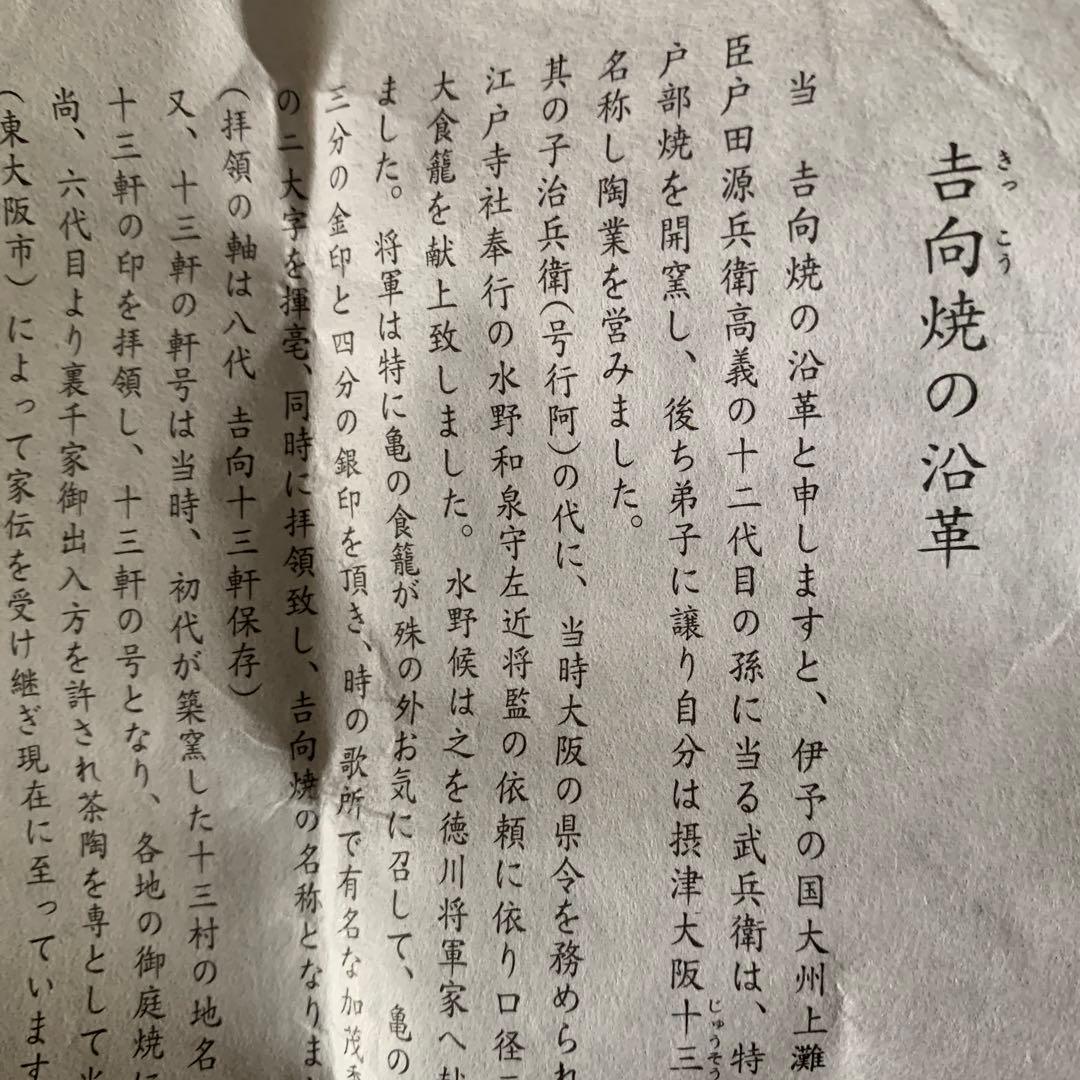 𠮷向焼の沿革
きっこう
当　𠮷向焼の沿革と申しますと、伊予の国大州上灘
臣戸田源兵衛高義の十二代目の孫に当る武兵衛は、特
戸部焼を開窯し、後ち弟子に譲り自分は摂津大阪十三
じゅうそう
名称し陶業を営みました。
其の子治兵衛(号行阿)の代に、当時大阪の県令を務められ
江戸寺社奉行の水野和泉守左近将監の依頼に依り口径
大食籠を献上致しました。水野候は之を徳川将軍家へ献
ました。将軍は特に亀の食籠が殊の外お気に召して、亀の
三分の金印と四分の銀印を頂き、時の歌所で有名な加茂季
の二大字を揮亳、同時に拝領致し、𠮷向焼の名称となりま
(拝領の軸は八代　𠮷向十三軒保存)
又、十三軒の軒号は当時、初代が築窯した十三村の地名
十三軒の印を拝領し、十三軒の号となり、各地の御庭焼に
尚、六代目より裏千家御出入方を許され茶陶を専として
(東大阪市)によって家伝を受け継ぎ現在に至っています